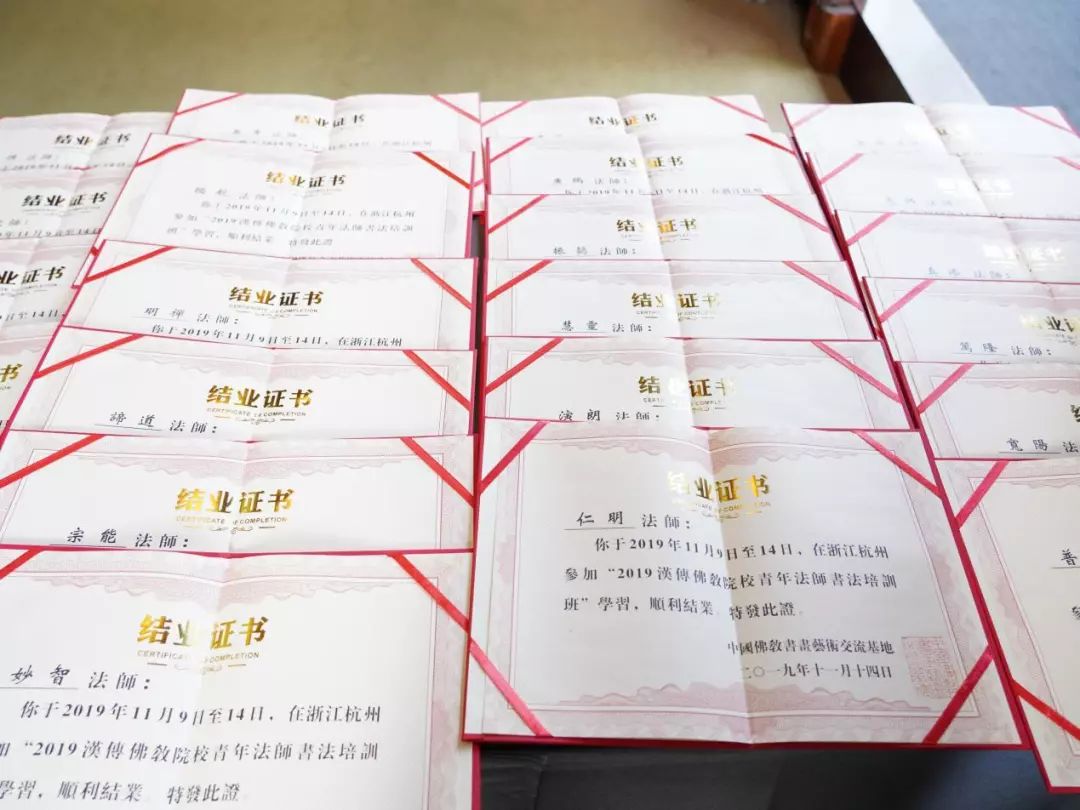 结业证书
法師：
结业证书
法師：
2019年11月9日至14日，在浙江杭州
结业证书
结业证书
法師：
于2019年11月9日至14日，在浙江杭州
結业证书
法師：
你于2019年11月9日至14日，在浙江杭州
參加“2019漢傳佛教院校青年法師書法培訓
班”學習，順利結業 特發此證
结业证书
CERTIFICATE OF COMPLETION
明禪 法師：
你于2019年11月9日至14日，在浙江杭州
结业证书
CERTIFICATE OF COMPLETION
諦道 法師：
结业证书
CERTIFICATE OF COMPLETION
宗能 法師：
结业证书
CERTIFICATE OF COMPLETION
妙智 法師：
你于2019年11月9日至14日，在浙江杭州
加“2019漢傳佛教院校青年法師書法培訓
學習，順利結業 特發此證
结业证书
结业证书
法師：
你于2019年11月9日至14日，在浙江杭州
结业证书
法師：
结业证书
CERTIFICATE OF COMPLETION
慧靈 法師：
结业证书
CERTIFICATE OF COMPLETION
演朗 法師：
结业证书
CERTIFICATE OF COMPLETION
仁明 法師：
你于2019年11月9日至14日，在浙江杭州
參加“2019漢傳佛教院校青年法師書法培訓
班”學習，順利結業，特發此證。
中國佛教書畫藝術交流基地
二〇一九年十一月十四日
法師：
结业证书
萬隆 法師：
寬陽 法師：
普